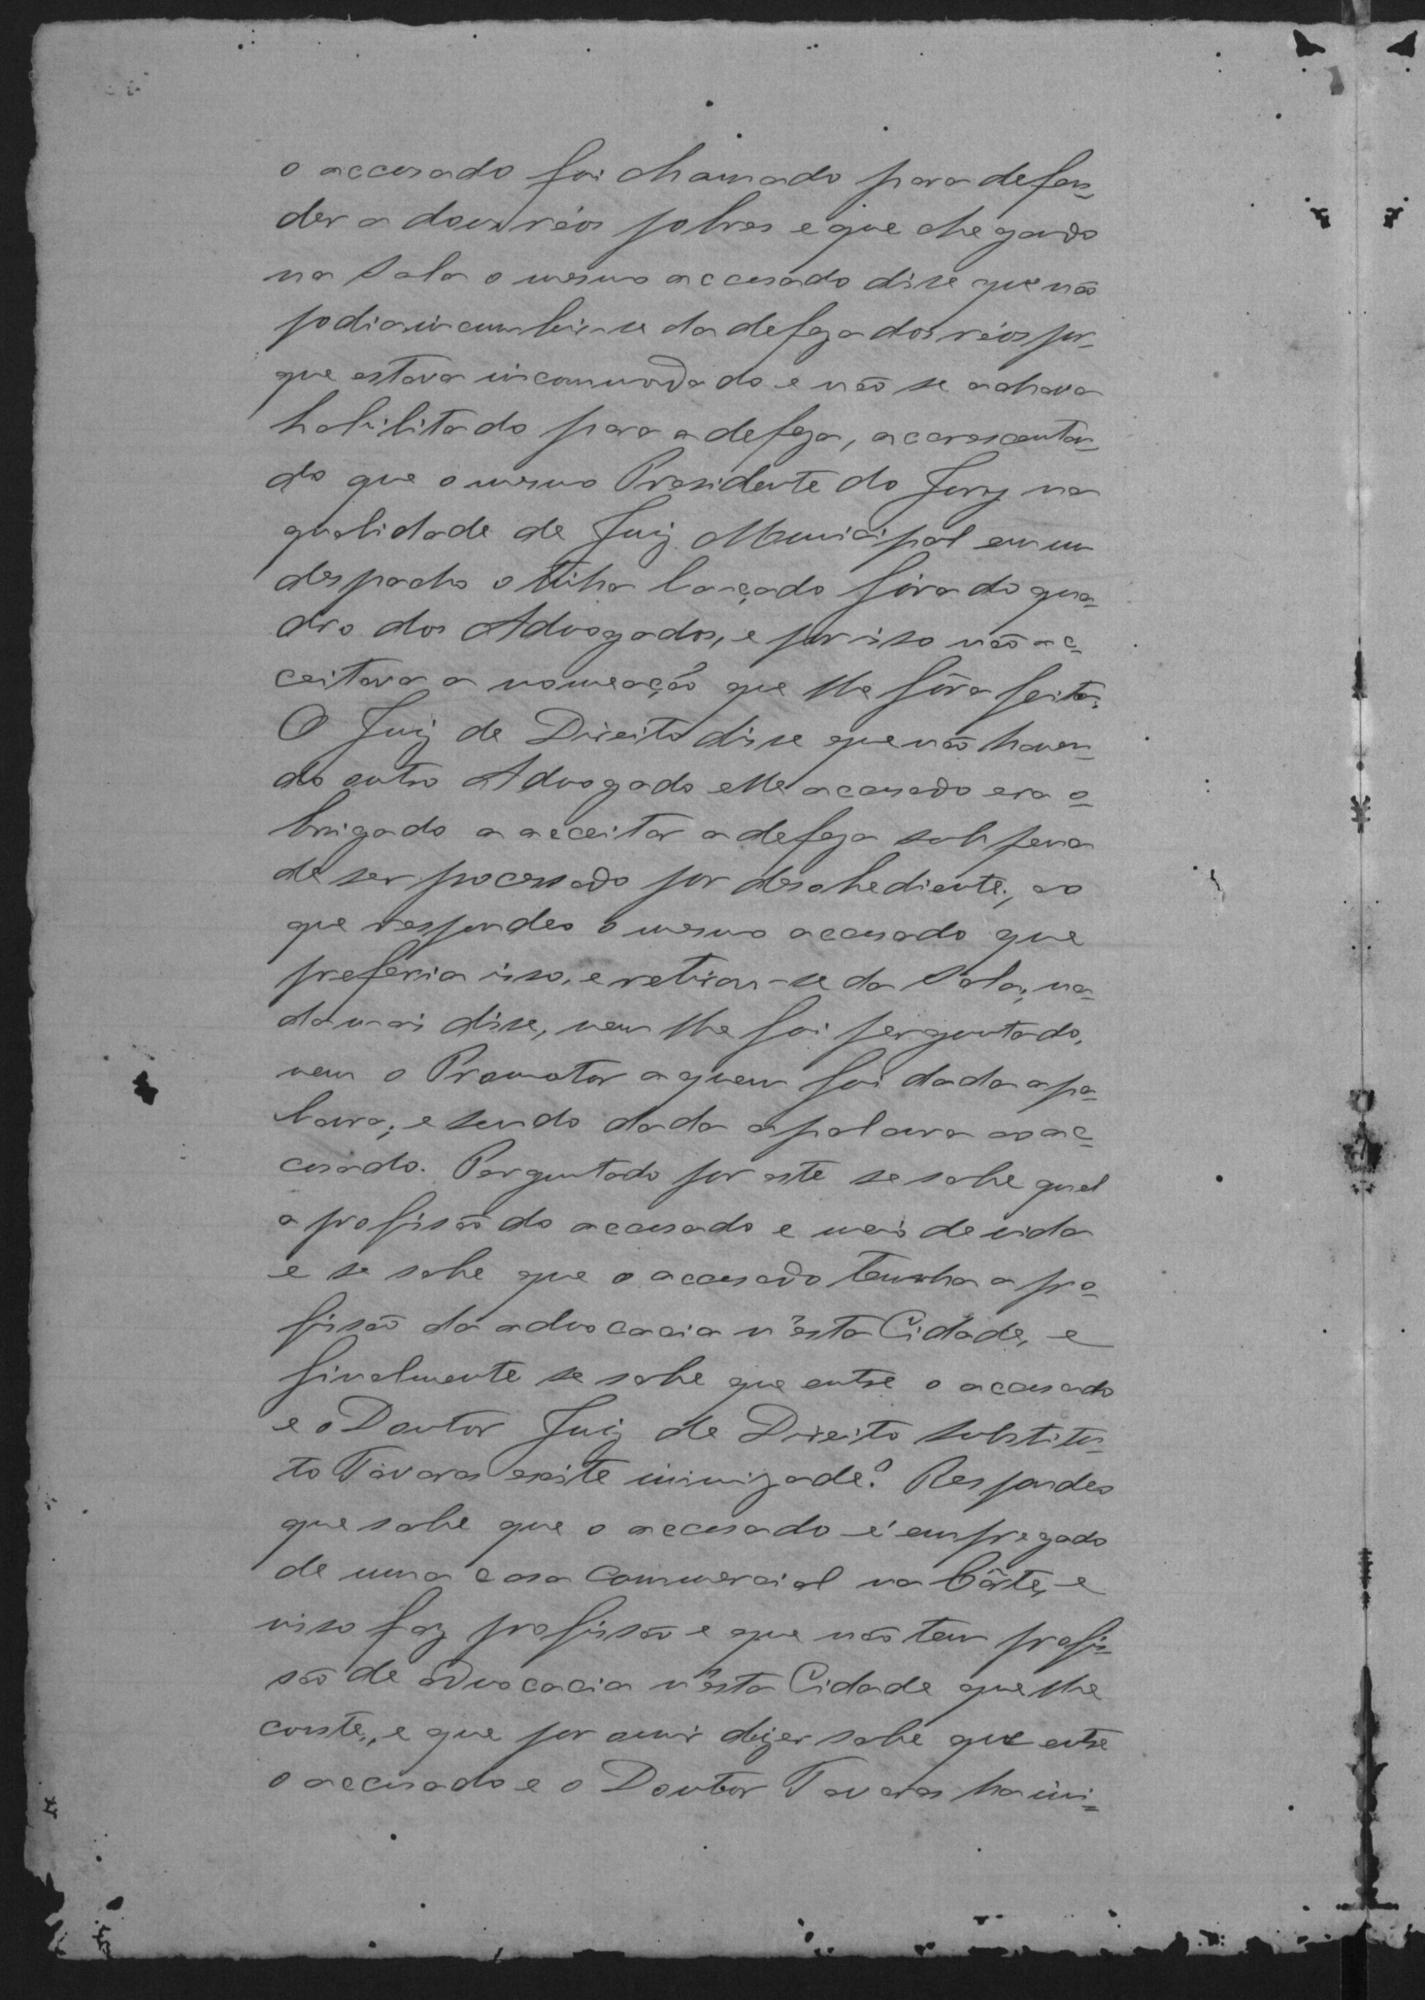 o accusado foi chamado para defen-
der a dous réos pobres e que chegando
na sala o mesmo accusado disse que não
podia incumbir-se da defeza dos réos por-
que estava incommodado e não se achava
habilitado para a defeza, accrescentan-
do que o mesmo Presidente do Jury na
qualidade de Juiz Municipal em um
despacho o tinha lançado fóra do qua-
dro dos Advogados, e por isso não ac-
ceitava a nomeação que lhe fôra feita.
O Juiz de Direito disse que não haven-
do outro Advogado elle accusado era o-
brigado a acceitar a defeza sob pena
de ser processado por desobediente, ao
que respondeo o mesmo accusado que
preferia isso, e retirou-se da Sala, na-
da mais disse, nem lhe foi perguntado,
nem o Promotor a quem foi dada a pa-
lavra; e sendo dada a palavra ao ac-
cusado. Perguntado por este se sabe qual
a profissão do accusado e meio de vida
e se sabe que o accusado tenha a pro-
fissão da advocacia n'esta Cidade, e
finalmente se sabe que entre o accusado
e o Doutor Juiz de Direito substitu-
to Tavares existe inimizade? Respondeo
que sabe que o accusado é empregado
de uma casa Commercial na Côrte, e
nisso faz profissão e que não tem profis-
são de advocacia n'esta Cidade que lhe
conste, e que por ouvir dizer sabe que entre
o accusado e o Doutor Tavares ha ini-